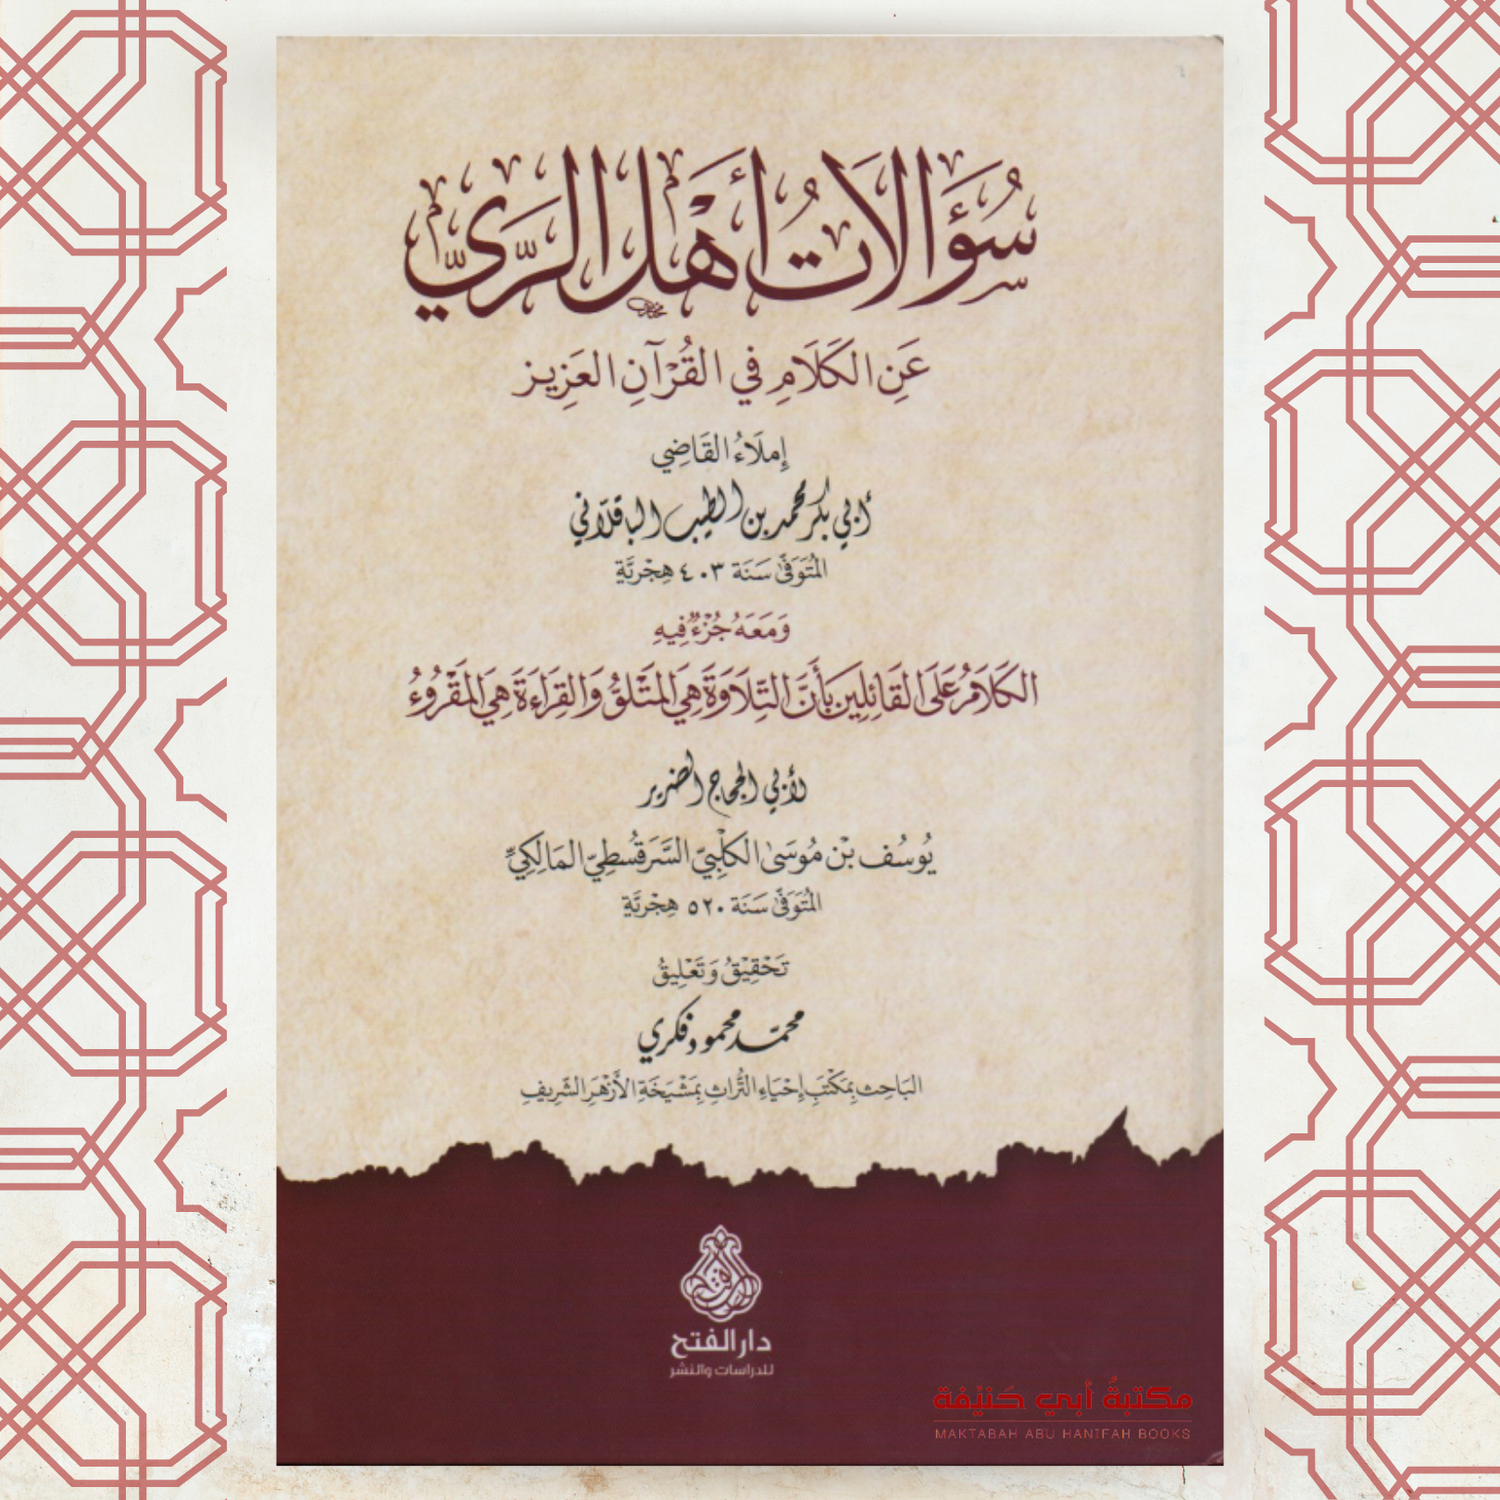 سُؤَالَاتُ أَهْلِ الرَّيِّ
عَنِ الكَلَامِ فِي القُرْآنِ العَزِيزِ
إِملَاءُ القَاضِي
أبي بكر محمد بن الطيب الباقلاني
المُتَوَفَّى سَنَة ٤٠٣ هِجْرِيَّةِ
وَمَعَهُ جُزْءٌ فِيهِ
الكَلَامُ عَلَى القَائِلِينَ بِأَنَّ التِّلَاوَةَ هِيَ المَتْلُوُّ وَالقِرَاءَةَ هِيَ المَقْرُوءُ
لأبي الحجاج الضرير
يُوسُف بْن مُوسَىٰ الكَلْبِيّ السَّرَقُسْطِيّ المَالِكِيِّ
المُتَوَفَّى سَنَة ٥٢٠ هِجْرِيَّةِ
تَحْقِيْقُ وَتَعْلِيقُ
محمّد محمود فكري
البَاحِث بِمَكْتَبِ إِحْيَاءِ التُّرَاثِ بِمَشْيَخَةِ الأَزْهَرِ الشَّرِيفِ
دار الفتح
للدراسات والنشر
مكتبةُ أبي حَنيْفة
MAKTABAH ABU HANIFAH BOOKS